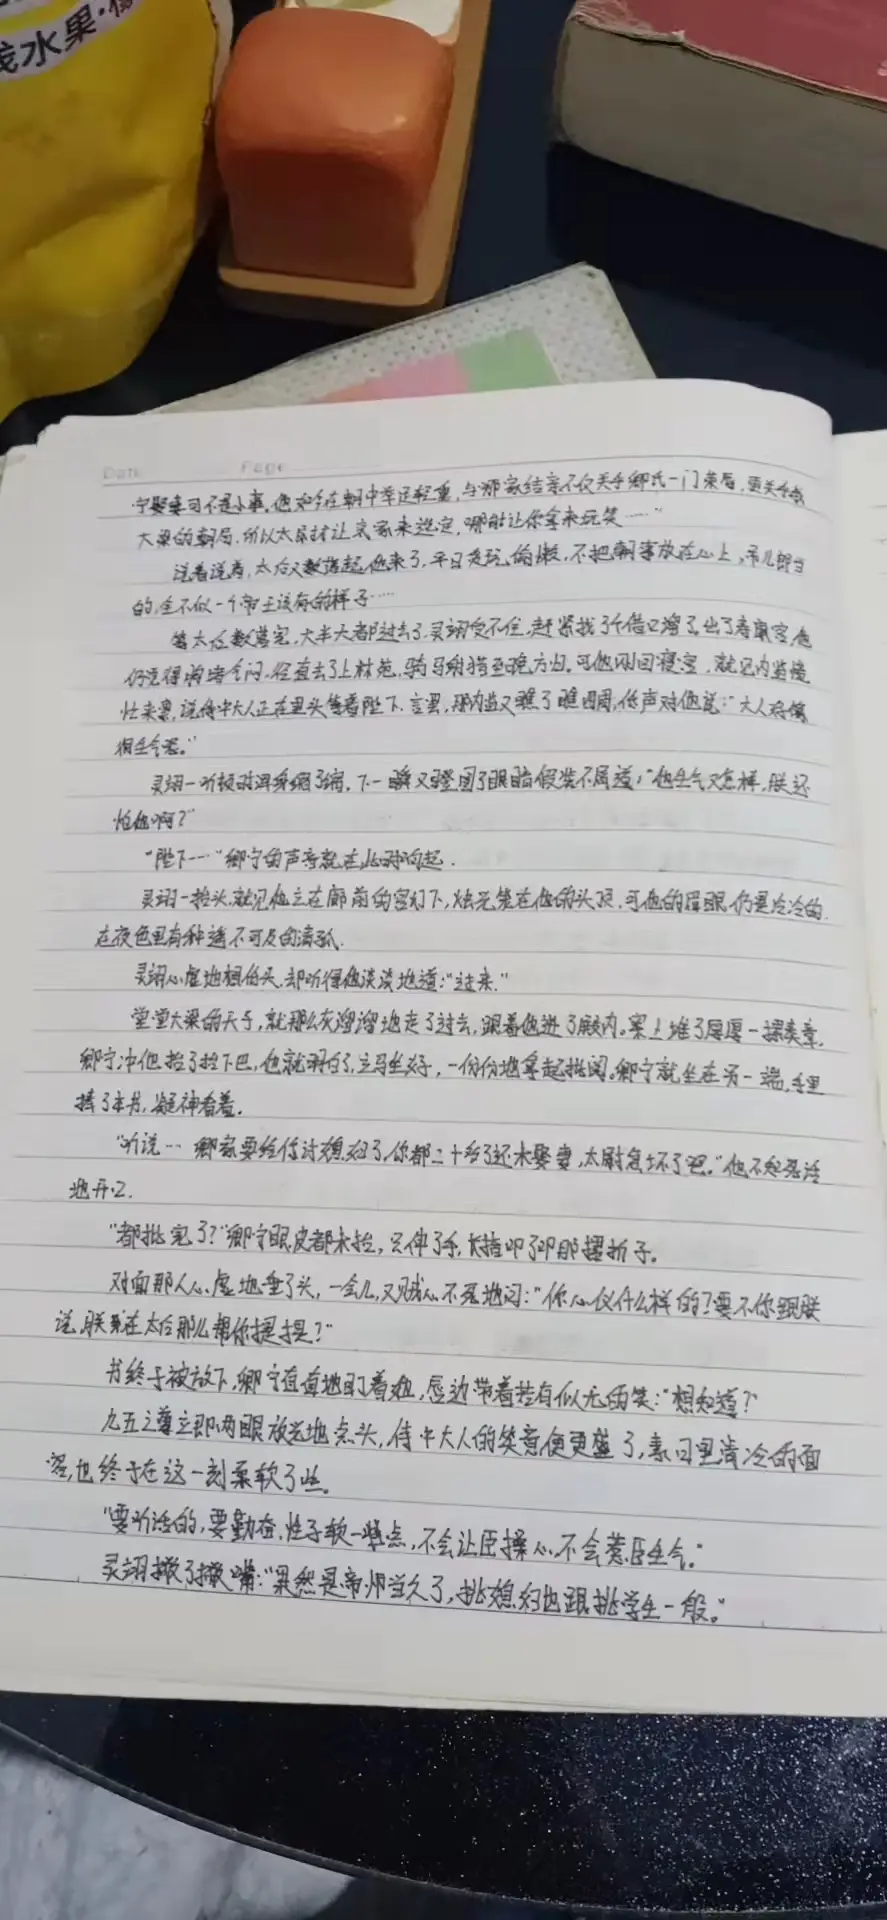 浅水果·
Date Page
宁娶妻可不是小事。他如今在朝中举足轻重,与哪家结亲不仅关乎卿氏一门荣辱,更关乎我
大梁的朝局,所以太尉才让哀家来选定,哪能让你拿来玩笑……"
说着说着,太后又数落起他来了,平日贪玩偷懒,不把朝事放在心上,吊儿郎当
的,全不似一个帝王该有的样子……
等太后数落完,大半天都过去了,灵翊受不住,赶紧找了个借口溜了。出了寿康宫,他
仍觉得胸堵气闷,径直去了上林苑,骑马射猎至晚方归。可他刚回寝宫,就见内监慌
忙来禀,说侍中大人正在里头等着陛下。言罢,那内监又瞧了瞧四周,低声对他说:"大人看着
很生气呢。"
灵翊一听顿时浑身缩了缩,下一瞬又瞪圆了眼睛假装不屑道:"他生气又怎样,朕还
怕他啊?"
"陛下……"卿宁的声音就在此时响起.
灵翊一抬头,就见他立在廊前的宫灯下,烛光笼在他的头顶,可他的眉眼仍是冷冷的.
在夜色里有种遥不可及的清孤.
灵翊心虚地想低头,却听得他淡淡地道:"过来."
堂堂大梁的天子,就那么灰溜溜地走了过去,跟着他进了殿内。案上堆了厚厚一摞奏章.
卿宁冲他抬了抬下巴,他就明白了,立马坐好,一份份地拿起批阅。卿宁就坐在另一端,手里
捧了本书,凝神看着.
"听说… 卿家要给你讨媳妇了,你都二十多了还未娶妻,太尉急坏了吧。"他不知死活
地开口.
"都批完了?"卿宁眼皮都未抬,只伸了手,长指叩了叩那摞折子。
对面那人心虚地垂了头,一会儿,又贼心不死地问:"你心仪什么样的?要不你跟朕
说,朕我在太后那儿帮你提提?"
书终于被放下,卿宁直直地盯着她,唇边带着若有似无的笑:"想知道?"
九五之尊立即两眼放光地点头,侍中大人的笑意便更盛了,素日里清冷的面
容,也终于在这一刻柔软了些。
"要听话的,要勤奋,性子软一点,不会让臣操心,不会惹臣生气。"
灵翊撇了撇嘴:"果然是帝师当久了,挑媳妇也跟挑学生一般。"